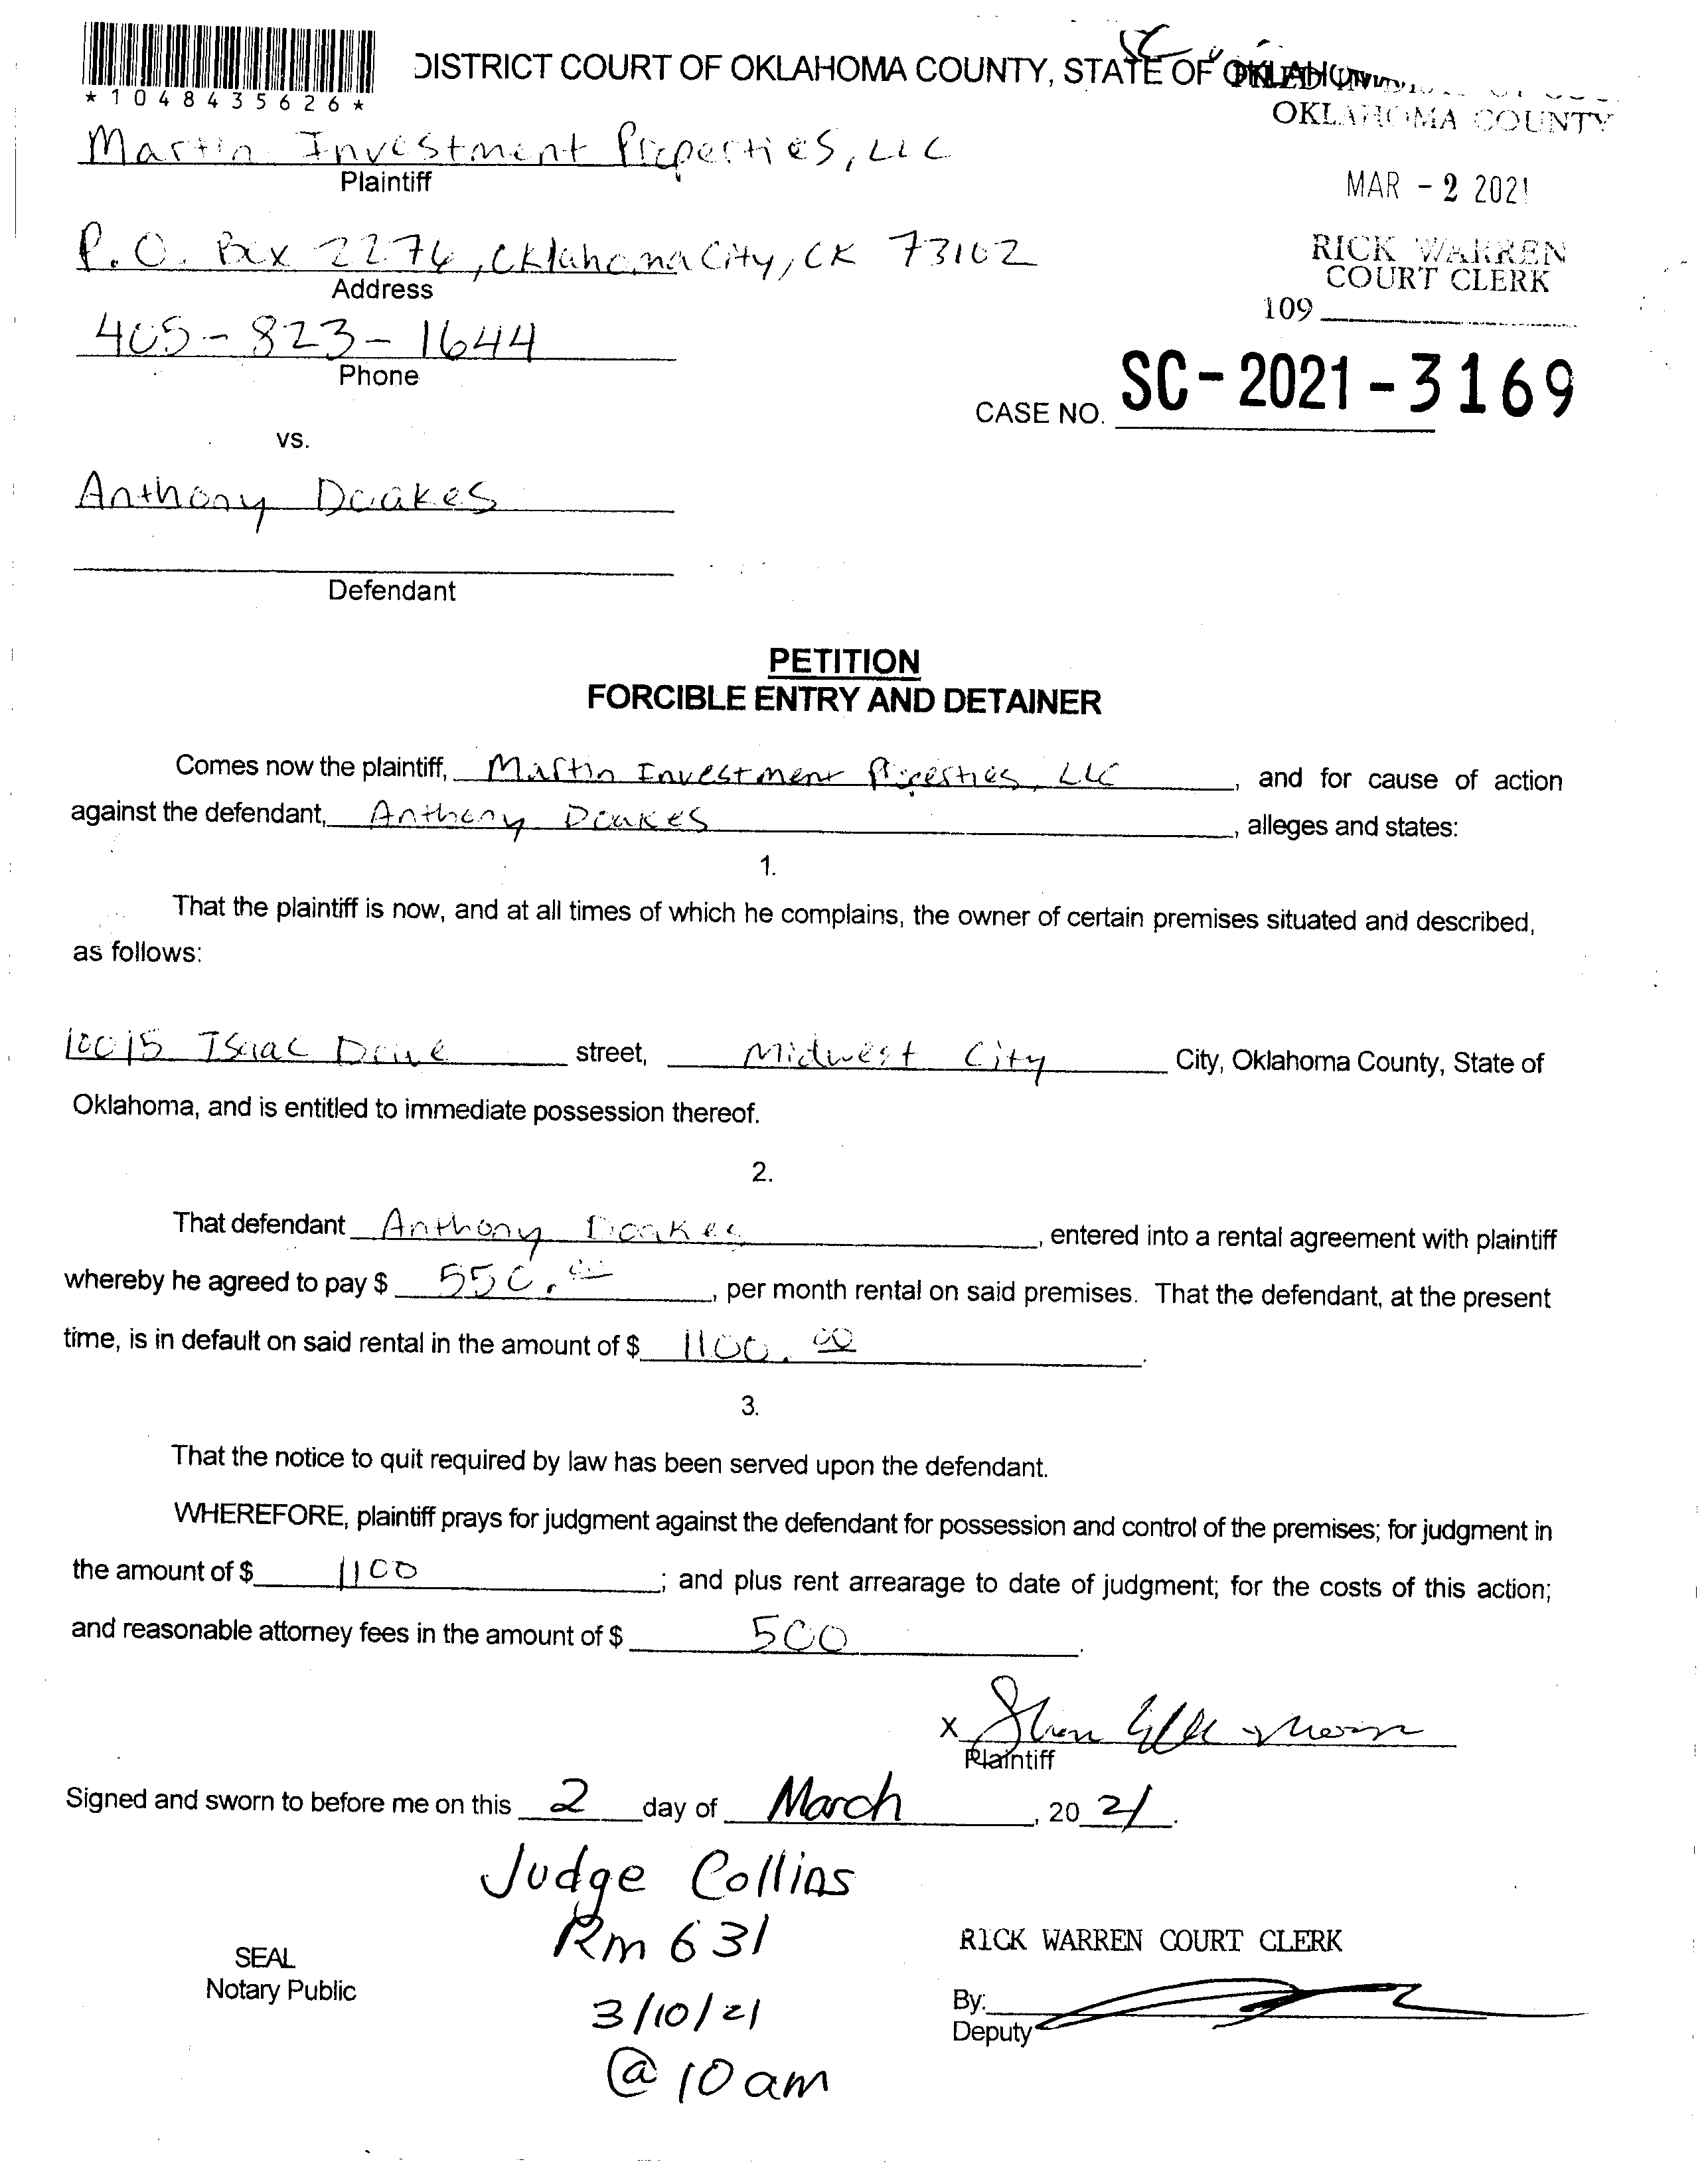 DISTRICT COURT OF OKLAHOMA COUNTY, STATE OF OKLAHOMA
*1048435626*
OKLAHOMA COUNTY
Martin Investment Properties, LLC
Plaintiff
MAR - 2 2021
P.O. Box 2276, Oklahoma City, OK 73102
Address
RICK WARREN
COURT CLERK
109
405-823-1644
Phone
CASE NO. SC-2021-3169
vs.
Anthony Doakes
Defendant
PETITION
FORCIBLE ENTRY AND DETAINER
Comes now the plaintiff, Martin Investment Properties, LLC, and for cause of action
against the defendant, Anthony Doakes, alleges and states:
1.
That the plaintiff is now, and at all times of which he complains, the owner of certain premises situated and described,
as follows:
10015 Isaac Drive street, Midwest City City, Oklahoma County, State of
Oklahoma, and is entitled to immediate possession thereof.
2.
That defendant Anthony Doakes, entered into a rental agreement with plaintiff
whereby he agreed to pay $ 550.00, per month rental on said premises. That the defendant, at the present
time, is in default on said rental in the amount of $ 1100.00.
3.
That the notice to quit required by law has been served upon the defendant.
WHEREFORE, plaintiff prays for judgment against the defendant for possession and control of the premises; for judgment in
the amount of $ 1100; and plus rent arrearage to date of judgment; for the costs of this action;
and reasonable attorney fees in the amount of $ 500.
x
Plaintiff
Signed and sworn to before me on this 2 day of March, 2021.
Judge Collins
Rm 631
3/10/21
@ 10 am
SEAL
Notary Public
RICK WARREN COURT CLERK
By:
Deputy